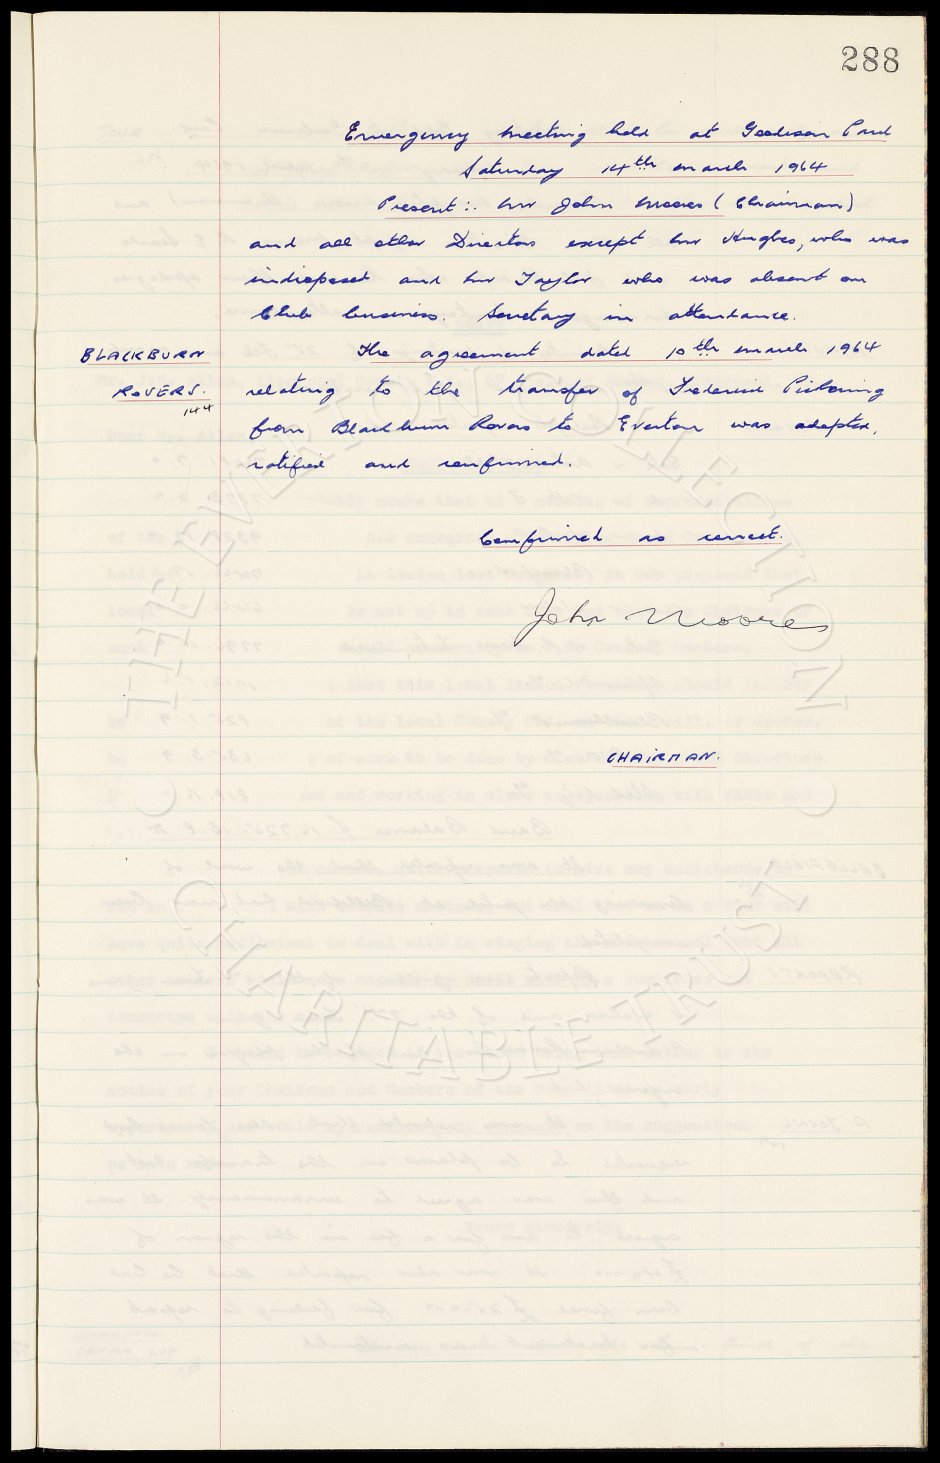 288
Emergency meeting held at Goodison Park
Saturday 14th March 1964
Present:. Mr John Moores (Chairman)
and all other Directors except Mr Hughes, who was
indisposed and Mr Taylor who was absent on
Club business. Secretary in attendance.
BLACKBURN
ROVERS.
144
The agreement dated 10th March 1964
relating to the transfer of Frederick Pickering
from Blackburn Rovers to Everton was adopted,
ratified and confirmed.
Confirmed as correct.
John Moores
CHAIRMAN.
THE EVERTON COLLECTION
CHARITABLE TRUST